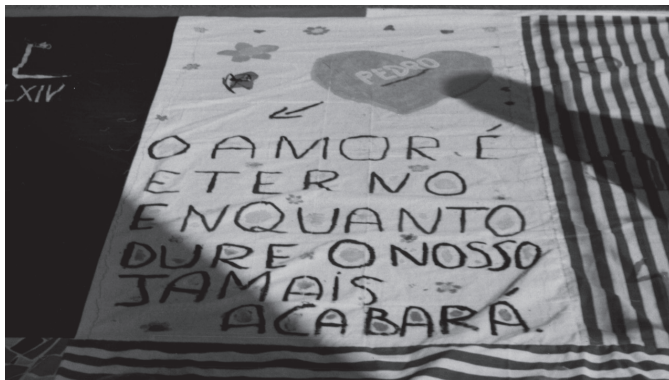 LXIV
PEDRO
O AMOR É
ETERNO
ENQUANTO
DURE O NOSSO
JAMAIS
ACABARÁ.